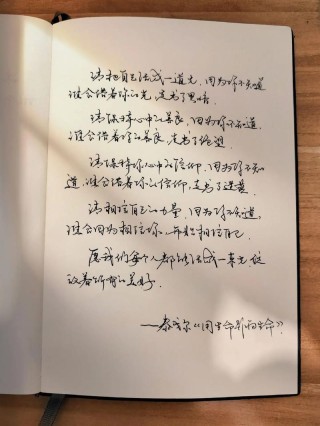 请把自己活成一道光，因为你不知道
谁会借着你的光，走出了黑暗。
请保持心中的善良，因为你不知道，
谁会借着你的善良，走出了绝望。
请保持你心中的信仰，因为你不知
道，谁会借着你的信仰，走出了迷茫。
请相信自己的力量，因为你不知道，
谁会因为相信你，开始相信自己。
愿我们每个人都能活成一束光，绽
放着所有的美好。
——泰戈尔《用生命影响生命》